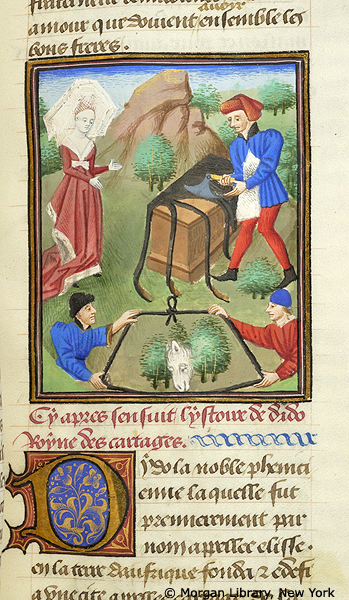 avoir
amour que doivent ensemble les
bons freres.
Cy apres sensuit lystoire de dido
Royne des cartages.
Dydo la noble phenici
enne laquelle fut
premierement par
nom appellee elisse.
en la terre daufrique fonda & edefi
© Morgan Library, New York